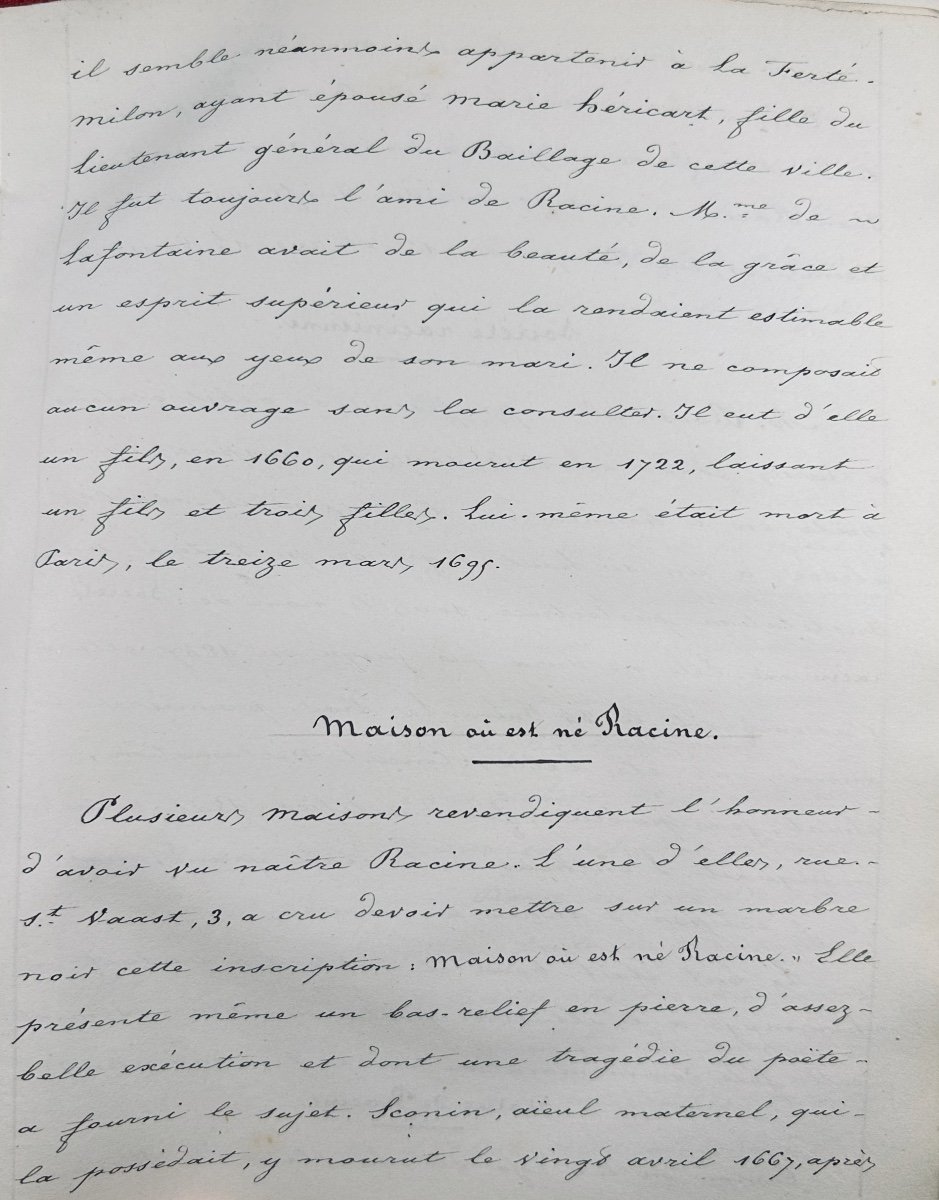 il semble néanmoins appartenir à La Ferté-
milon, ayant épousé marie héricart, fille du
Lieutenant général du Baillage de cette ville.
Il fut toujours l'ami de Racine. M.me de
Lafontaine avait de la beauté, de la grâce et
un esprit supérieur qui la rendaient estimable
même aux yeux de son mari. Il ne composait
aucun ouvrage sans la consulter. Il eut d'elle
un fils, en 1660, qui mourut en 1722, laissant
un fils et trois filles. Lui-même était mort à
Paris, le treize mars 1695.
Maison où est né Racine.
Plusieurs maisons revendiquent l'honneur-
d'avoir vu naître Racine. L'une d'elles, rue-
St. Vaast, 3, a cru devoir mettre sur un marbre
noir cette inscription : Maison où est né Racine. " Elle
présente même un bas-relief en pierre, d'assez-
belle exécution et dont une tragédie du poëte-
a fourni le sujet. Sconin, aïeul maternel, qui-
la possédait, y mourut le vingt avril 1667, après